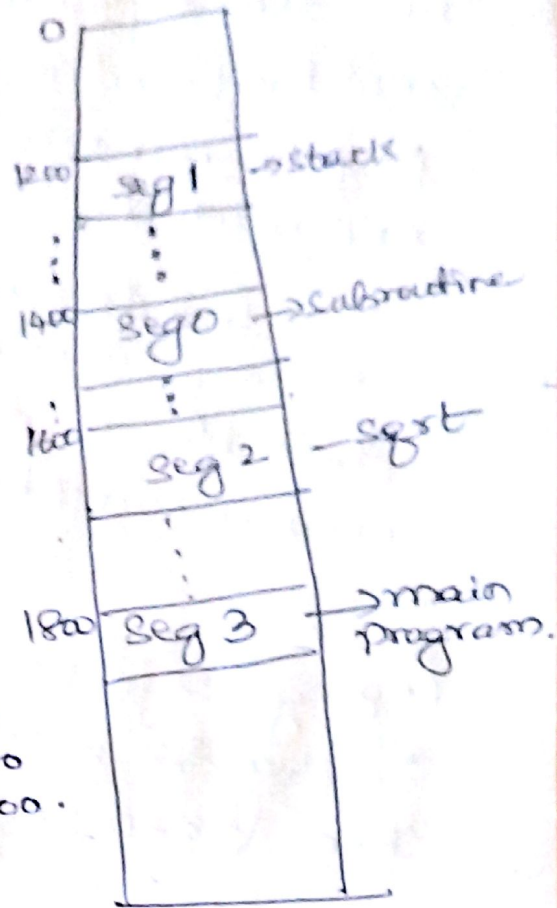 0
1200 seg 1 → stack
1400 seg 0 → subroutine
1600 seg 2 — sqrt
1800 seg 3 → main
program.
0
00.